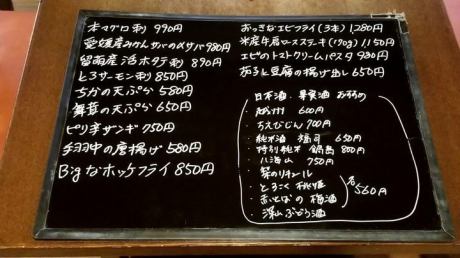 本マグロ刺 990円
愛媛産みかんサバの〆サバ 980円
留萌産活ホタテ刺 890円
とろサーモン刺 850円
ちかの天ぷら 580円
舞茸の天ぷら 650円
ピリ辛ザンギ 750円
手羽中の唐揚げ 580円
Bigなホッケフライ 850円
おっきなエビフライ(3本) 1,280円
米産牛肩ロースステーキ(190g) 1,150円
エビのトマトクリームパスタ 980円
茄子と豆腐の揚げ出し 650円
日本酒・果実酒 おすすめ
600円
・ちえびじん 700円
・純米酒 福司 650円
・特別純米 鍋島 800円
・八海山 750円
・梨のリキュール
・とろこく 桃姫
・梅酒
・深山ぶどう酒
各560円